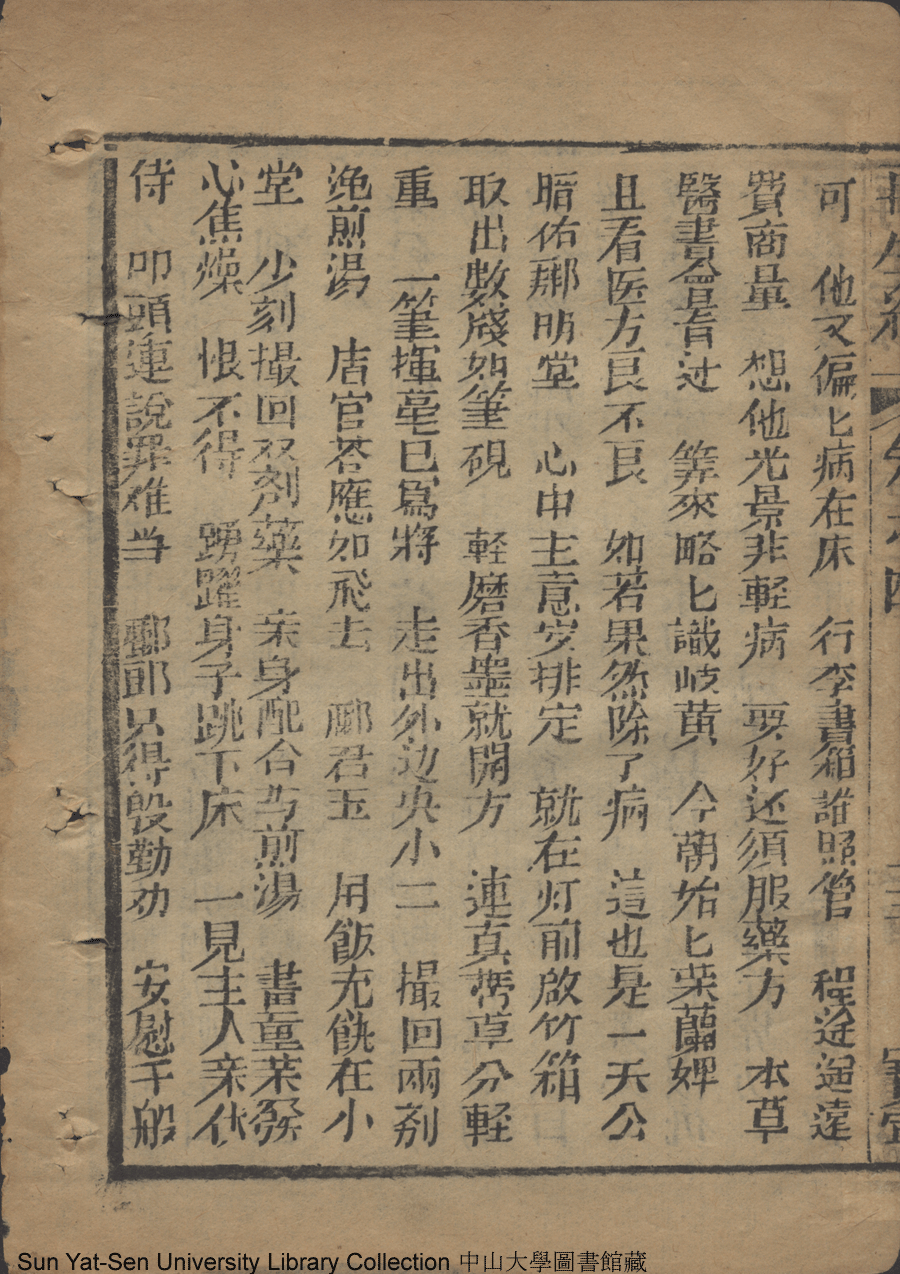 可 他又偏匕病在床 行李書箱誰照管 程途遥遠
費商量 想他光景非輕病 要好还須服藥方 本草
醫書盡晋过 筭來略匕識岐黄 今朝始匕荣蘭婢
且看医方良不良 如若果然除了病 這也是一天公
暗佑郦明堂 心中主意安排定 就在灯前啟竹箱
取出數牋如筆硯 軽磨香墨就開方 連真帶草分軽
重 一筆揮毫已寫將 走出外边央小二 撮回兩剂
浼煎湯 店官荅應如飛去 郦君玉 用飯充飢在小
堂 少刻撮回双剂藥 亲身配合与煎湯 書童荣發
心焦燥 恨不得 踴躍身子跳下床 一見主人亲伏
侍 叩頭連說罪难当 酈郎只得殷勤劝 安慰千般
Sun Yat-Sen University Library Collection 中山大學圖書館藏